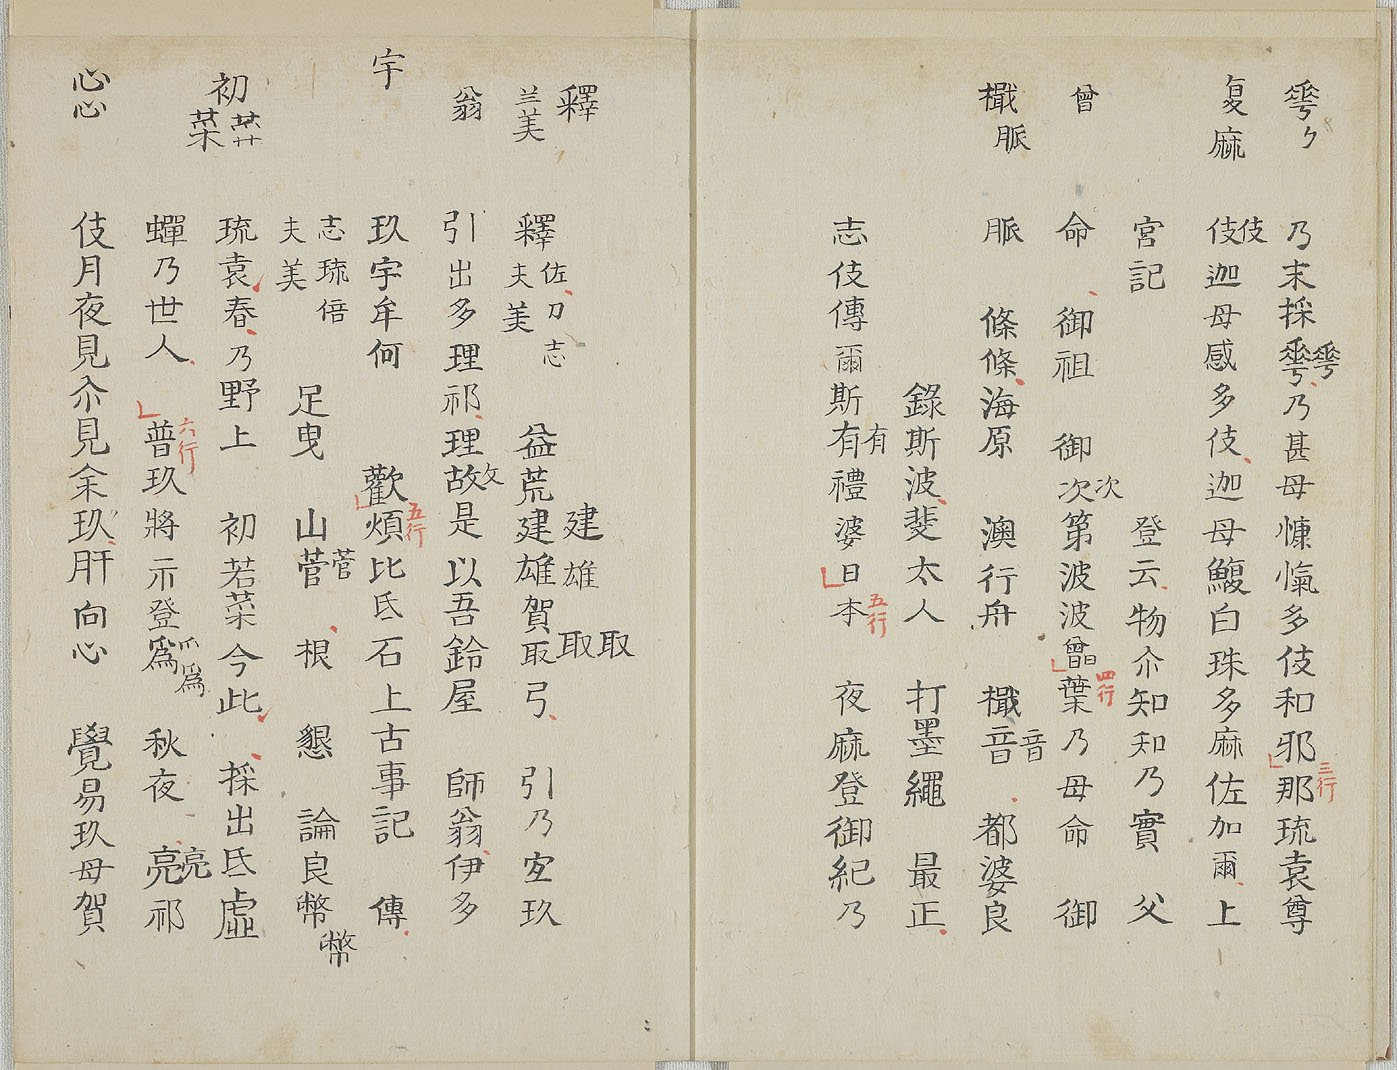 乃末採㟢乃甚母慷愾多伎和邪那琉袁尊
復麻
伎迦母感多伎迦母鰒白珠多麻佐加爾上
伎
宮記 登云物尒知知乃實 父
曾
命 御祖 御次第波波曾葉乃母命 御
次
檝脈
脈 條條海原 澳行舟 檝音 都婆良
音
錄斯波斐太人 打墨繩 最正
志伎傳爾斯有禮婆日本 夜麻登御紀乃
有
三行
四行
五行
釋
兰美
釋夫美 益荒建雄賀取弓 引乃宐玖
佐刀志
建雄取
取
翁
引出多理祁理故是以吾鈴屋 師翁伊多
攵
宇
玖宇牟何 歡煩比氐石上古事記 傳
五行
志琉倍
夫美 足曳 山菅 根 懇 論良幣
菅
幣
初菜
琉袁春乃野上 初若菜今此 採出氐虛
蟬乃世人 普玖將示登爲 秋夜 亮祁
六行
爲
亮
心心
伎月夜見尒見余玖肝向心 覺易玖母賀